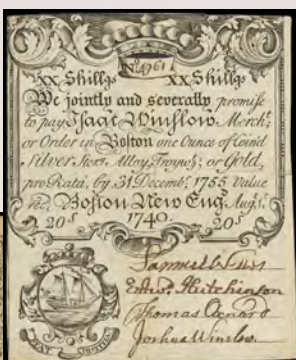 No 4961
XX Shillgs XX Shillgs
We jointly and severally promise
to pay Isaac Winslow Mercht
or Order in Boston one Ounce of Coin'd
Silver Alloy, Troywt; or Gold,
pro Rata, by 31 Decembr 1755 Value
recd. Boston New Eng. Augt 1.
20s 1740. 20s
Samuel
Edwd. Hutchinson
Thomas Oxnard
Joshua Winslow